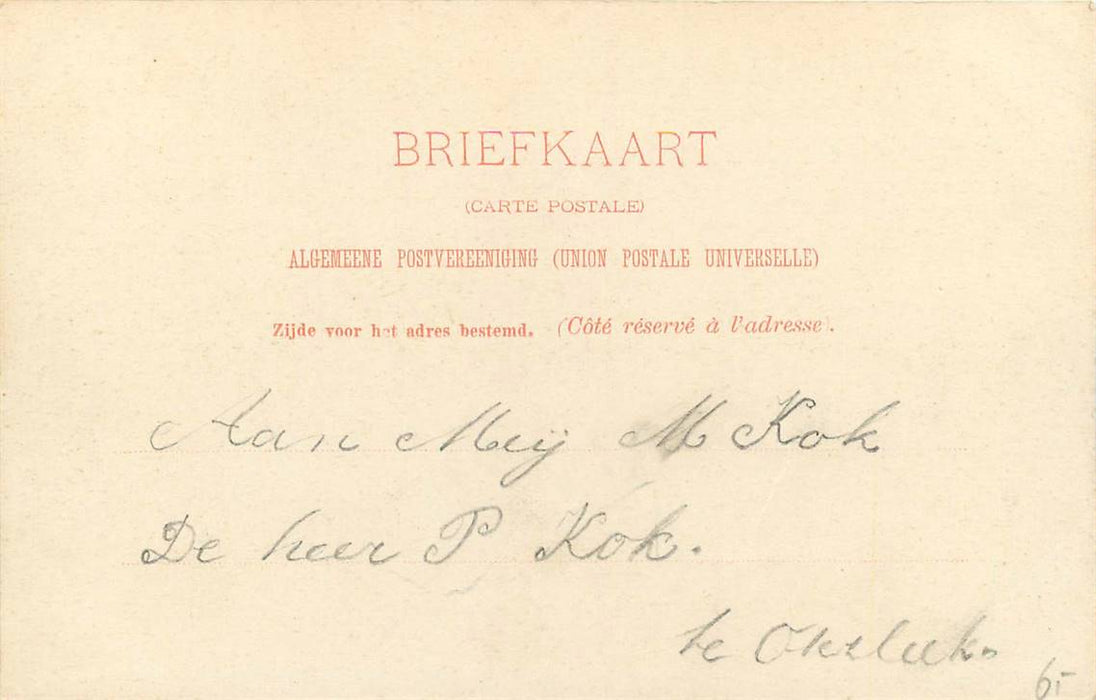 BRIEFKAART
(CARTE POSTALE)
ALGEMEENE POSTVEREENIGING (UNION POSTALE UNIVERSELLE)
Zijde voor het adres bestemd. (Côté réservé à l'adresse).
Aan Meij M Kok
De heer P Kok.
te